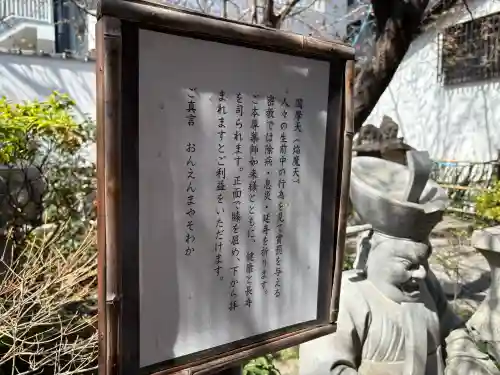 閻摩天(焔魔天)
人々の生前中の行為を見て賞罰を与える
密教では除病・息災・延寿を祈ります。
ご本尊薬師如来様とともに、健康と長寿
を司られます。正面で膝を屈め、下から拝
まれますとご利益をいただけます。
ご真言 おんえんまやそわか